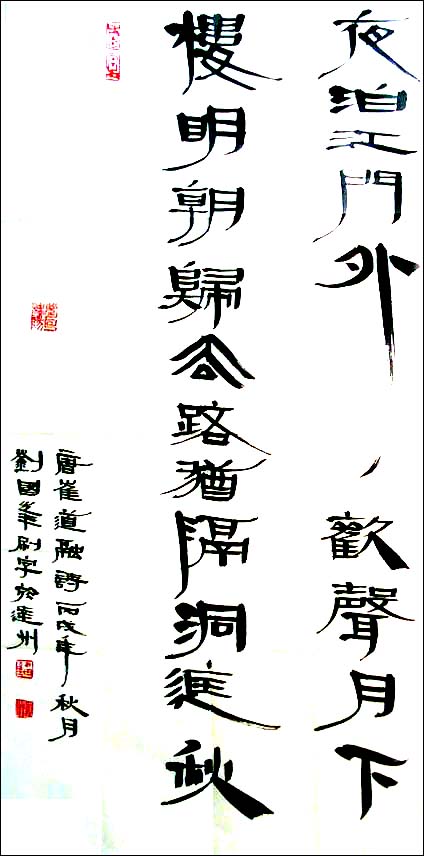 夜泊江門外歡聲月下
樓明朝歸去路猶隔洞庭秋
唐崔道融詩丙戌年秋月
劉國刷字於州